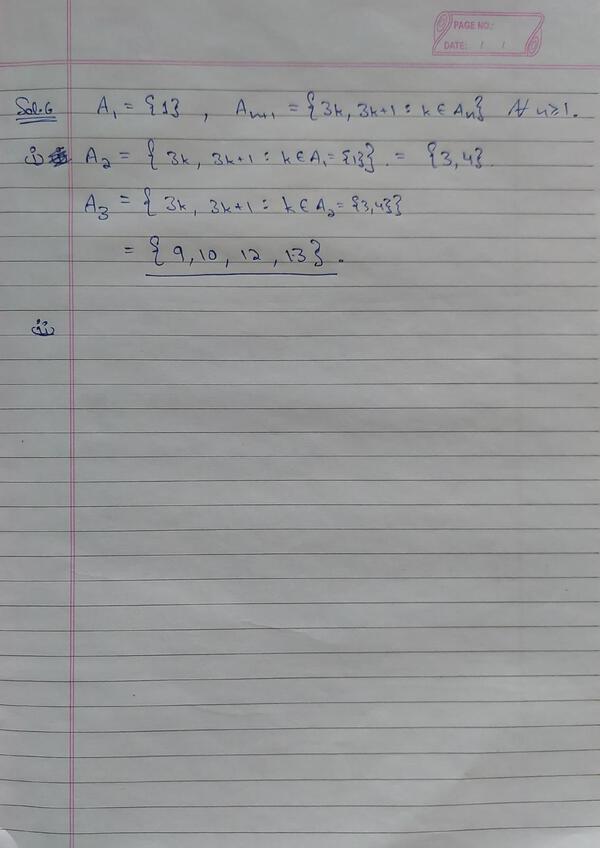 PAGE NO.:
DATE: / /
Sol.6 A₁ = {1} , Aₙ₊₁ = {3k, 3k+1 : k ∈ Aₙ} ∀ n≥1.
i) A₂ = { 3k, 3k+1 : k ∈ A₁ = {1}} . = {3,4}.
A₃ = { 3k, 3k+1 : k ∈ A₂ = {3,4}}
= { 9, 10, 12, 13 } .
ii)